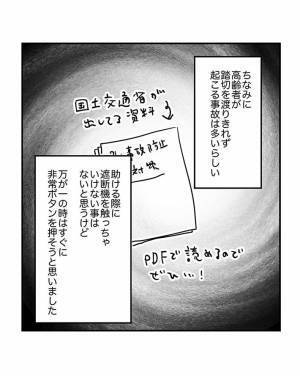 ちなみに
高齢者が
踏切を渡りきれず
起こる事故は多いらしい
国土交通省が
出してる資料
事故防止
対策
助ける際に
遮断機を触っちゃ
いけない事は
ないと思うけど
万が一の時はすぐに
非常ボタンを押そうと思いました
PDFで読めるので
ぜひ…!